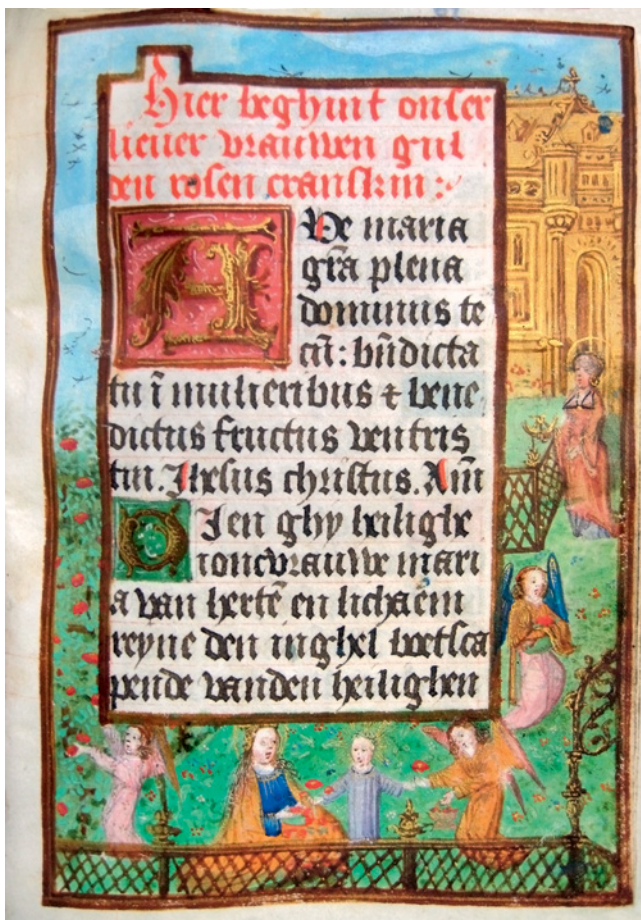 Hier beghint onser
lieuer vrauwen gul
den rosen cranskin :
AVe maria
gr̄a plena
dominus te
cū : bn̄dicta
tu ī mulieribus ⁊ bene
dictus fructus ventris
tui. Jhesus christus. Am̄
DJen ghy heilighe
ioncvrauwe mari
a van hertē en lichaem
reyne den inghel boetsca
pende vanden heilighen